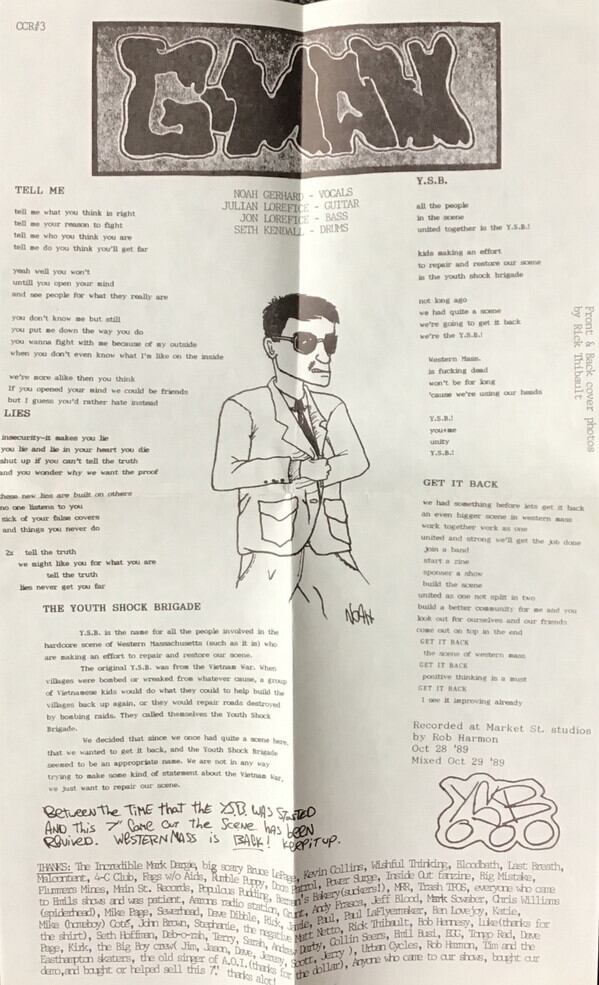 CCR#3
G-MAN
NOAH GERHARD - VOCALS
JULIAN LOREFICE - GUITAR
JON LOREFICE - BASS
SETH KENDALL - DRUMS
TELL ME
tell me what you think is right
tell me your reason to fight
tell me who you think you are
tell me do you think you'll get far
yeah well you won't
untill you open your mind
and see people for what they really are
you don't know me but still
you put me down the way you do
you wanna fight with me because of my outside
when you don't even know what I'm like on the inside
we're more alike then you think
If you opened your mind we could be friends
but I guess you'd rather hate instead
LIES
insecurity-it makes you lie
you lie and lie in your heart you die
shut up if you can't tell the truth
and you wonder why we want the proof
these new lies are built on others
no one listens to you
sick of your false covers
and things you never do
2x tell the truth
we might like you for what you are
tell the truth
lies never get you far
THE YOUTH SHOCK BRIGADE
Y.S.B. is the name for all the people involved in the
hardcore scene of Western Massachusetts (such as it is) who
are making an effort to repair and restore our scene.
The original Y.S.B. was from the Vietnam War. When
villages were bombed or wreaked from whatever cause, a group
of Vietnamese kids would do what they could to help build the
villages back up again, or they would repair roads destroyed
by bombing raids. They called themselves the Youth Shock
Brigade.
We decided that since we once had quite a scene here,
that we wanted to get it back, and the Youth Shock Brigade
seemed to be an appropriate name. We are not in any way
trying to make some kind of statement about the Vietnam War,
we just want to repair our scene.
BETWEEN THE TIME THAT THE YSB. WAS STARTED
AND THIS 7" CAME OUT THE SCENE HAS BEEN
REVIVED. WESTERN MASS IS BACK! KEEP IT UP.
NOAH
Y.S.B.
all the people
in the scene
united together is the Y.S.B.!
kids making an effort
to repair and restore our scene
is the youth shock brigade
not long ago
we had quite a scene
we're going to get it back
we're the Y.S.B.!
Western Mass.
is fucking dead
won't be for long
'cause we're using our heads
Y.S.B.!
you+me
unity
Y.S.B.!
GET IT BACK
we had something before lets get it back
an even bigger scene in western mass
work together work as one
united and strong we'll get the job done
join a band
start a zine
sponser a show
build the scene
united as one not split in two
build a better community for me and you
look out for ourselves and our friends
come out on top in the end
GET IT BACK
the scene of western mass
GET IT BACK
positive thinking is a must
GET IT BACK
I see it improving already
Front & Back cover photos
by Rick Thibault
Recorded at Market St. studios
by Rob Harmon
Oct 28 '89
Mixed Oct 29 '89
YSB
THANKS: The Incredible Mark Dargie, big scary Bruce LePage, Kevin Collins, Wishful Thinking, Bloodbath, Last Breath,
Malcontent, 4-C Club, Rags w/o Aids, Rumble Puppy, Doom Patrol, Power Surge, Inside Out fanzine, Big Mistake,
Plummers Mines, Main St. Records, Populous Pudding, Bakery(suckers!), MRR, Trash TFOS, everyone who came
to Brills shows and was patient, Aarons radio station, Grunt, Andy Frasca, Jeff Blood, Mark Sowaber, Chris Williams
(spiderhead), Mike Page, Sewerhead, Dave Dibble, Rick, Jamie, Paul, Paul LaFlyermaker, Ben Lovejoy, Katie,
Mike (homeboy) Coté, John Brown, Stephanie, the negative Matt Netto, Rick Thibault, Bob Hennesy, Luke(thanks for
the shirt), Seth Hoffman, Deb-o-rah, Terry, Sarah, Andrew Darby, Collin Seers, Bril Busi, EGG, Tongo Rad, Dave
Page, Kirk, the Big Boy crew( Jim, Jason, Dave, Jeremy, Scott, Jerry ), Urban Cycles, Rob Harmon, Tim and the
Easthampton skaters, the old singer of A.O.I.(thanks for the dollar), Anyone who came to our shows, bought our
demo,and bought or helped sell this 7". thanks alot!